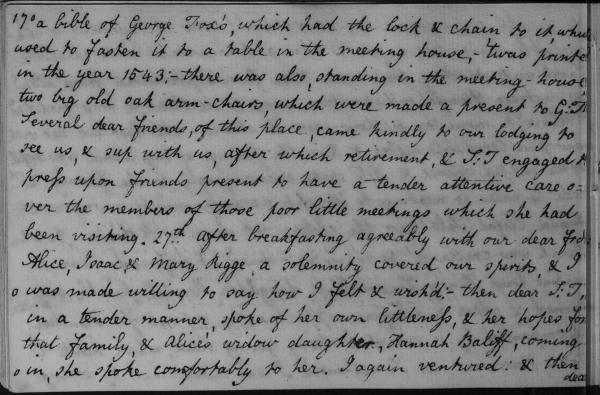 170 a bible of George Fox's, which had the lock & chain to it, which
used to fasten it to a table in the meeting house,- 'twas printe
in the year 1543;- there was also, standing in the meeting-house,
two big old oak arm-chairs, which were made a present to G:
Several dear friends, of this place, came kindly to our lodging to
see us, & sup with us, after which retirement, & S:T engaged to
press upon friends present to have a tender attentive care o-
ver the members of those poor little meetings which she had
been visiting. 27th after breakfasting agreeably with our dear frds
Alice, Isaac & Mary Rigge, a solemnity covered our spirits, & I
o was made willing to say how I felt & wish'd:- then dear S:T,
in a tender manner, spoke of her own littleness, & her hopes for
that family, & Alice's widow daughter, Hannah Baliff, coming
o in, she spoke comfortably to her. I again ventured: & then
dear